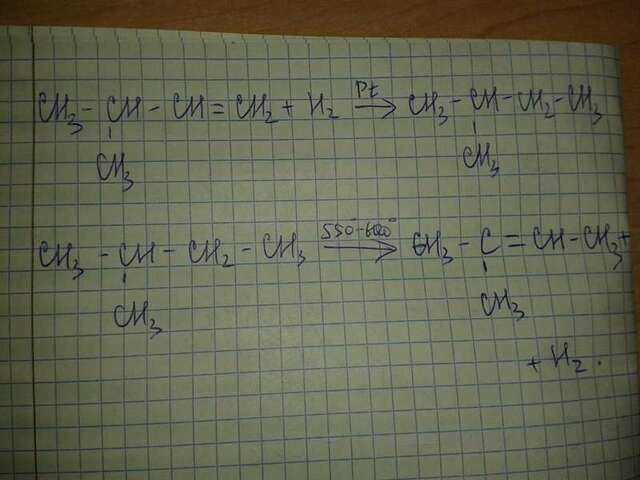 CH₃ - CH - CH = CH₂ + H₂ Pt → CH₃ - CH - CH₂ - CH₃
CH₃ CH₃
CH₃ - CH - CH₂ - CH₃ 550°-600° → CH₃ - C = CH - CH₃ +
CH₃ CH₃
+ H₂.